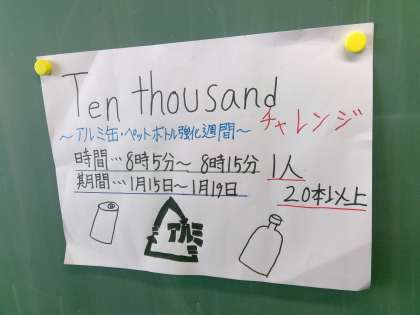 Ten thousand
チャレンジ
～アルミ缶・ペットボトル強化週間～
時間…8時5分～8時15分
期間…1月15日～1月19日
1人
20本以上
アルミ